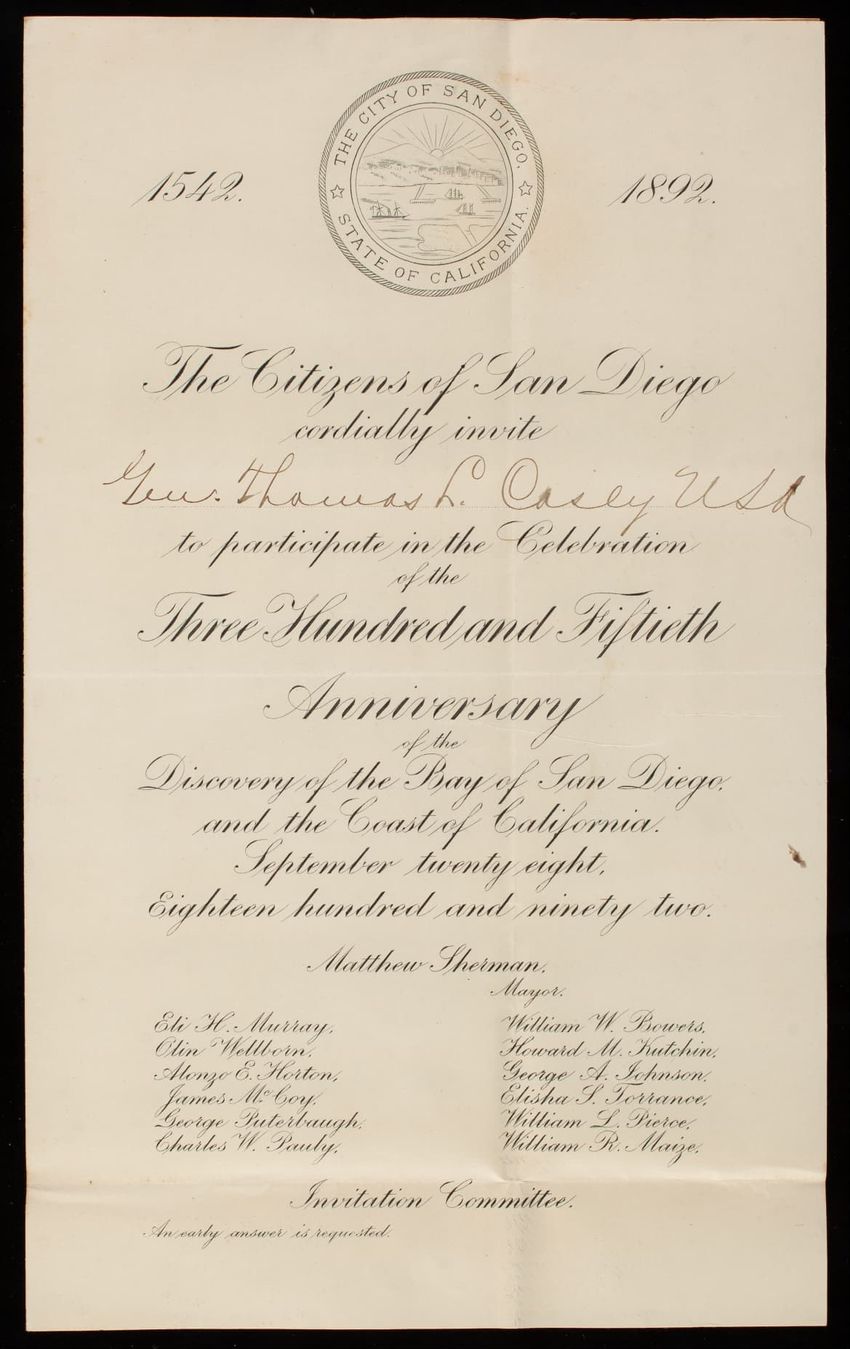 1542.
THE CITY OF SAN DIEGO.
STATE OF CALIFORNIA.
1892.
The Citizens of San Diego
cordially invite
Gen. Thomas L. Casey USA
to participate in the Celebration
of the
Three Hundred and Fiftieth
Anniversary
of the
Discovery of the Bay of San Diego,
and the Coast of California.
September twenty eight,
Eighteen hundred and ninety two.
Matthew Sherman,
Mayor.
Eli H. Murray,
Olin Wellborn,
Alonzo E. Horton,
James McCoy,
George Puterbaugh,
Charles W. Pauly,
William W. Bowers,
Howard M. Kutchin,
George A. Johnson,
Elisha S. Torrance,
William L. Pierce,
William R. Maize,
Invitation Committee.
An early answer is requested.